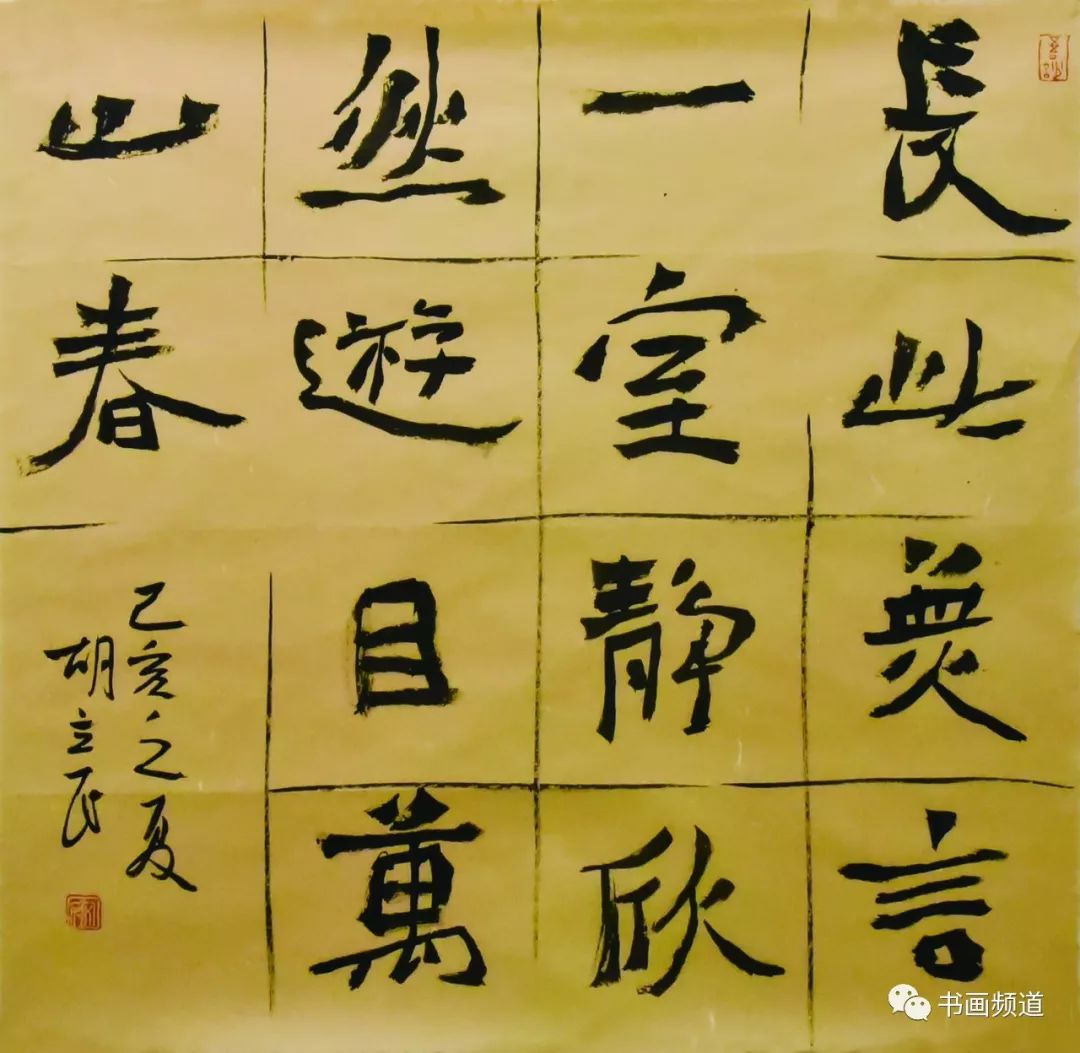 長此無言
一室靜欣
然遊目萬
山春
己亥之夏
胡立民
书画频道